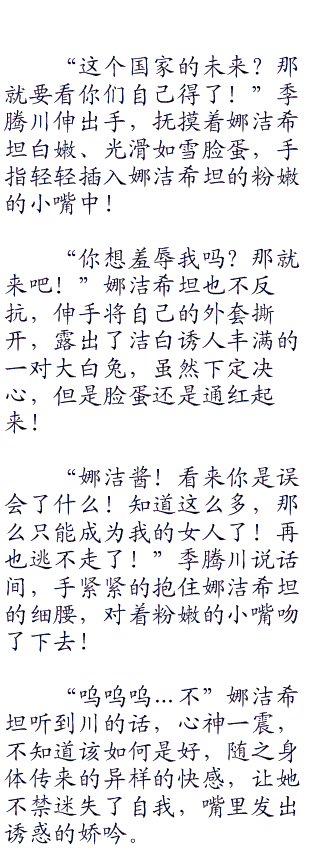 “这个国家的未来？那
就要看你们自己得了！”季
腾川伸出手，抚摸着娜洁希
坦白嫩、光滑如雪脸蛋，手
指轻轻插入娜洁希坦的粉嫩
的小嘴中！
“你想羞辱我吗？那就
来吧！”娜洁希坦也不反
抗，伸手将自己的外套撕
开，露出了洁白诱人丰满的
一对大白兔，虽然下定决
心，但是脸蛋还是通红起
来！
“娜洁酱！看来你是误
会了什么！知道这么多，那
么只能成为我的女人了！再
也逃不走了！”季腾川说话
间，手紧紧的抱住娜洁希坦
的细腰，对着粉嫩的小嘴吻
了下去！
“呜呜呜…不”娜洁希
坦听到川的话，心神一震，
不知道该如何是好，随之身
体传来的异样的快感，让她
不禁迷失了自我，嘴里发出
诱惑的娇吟。